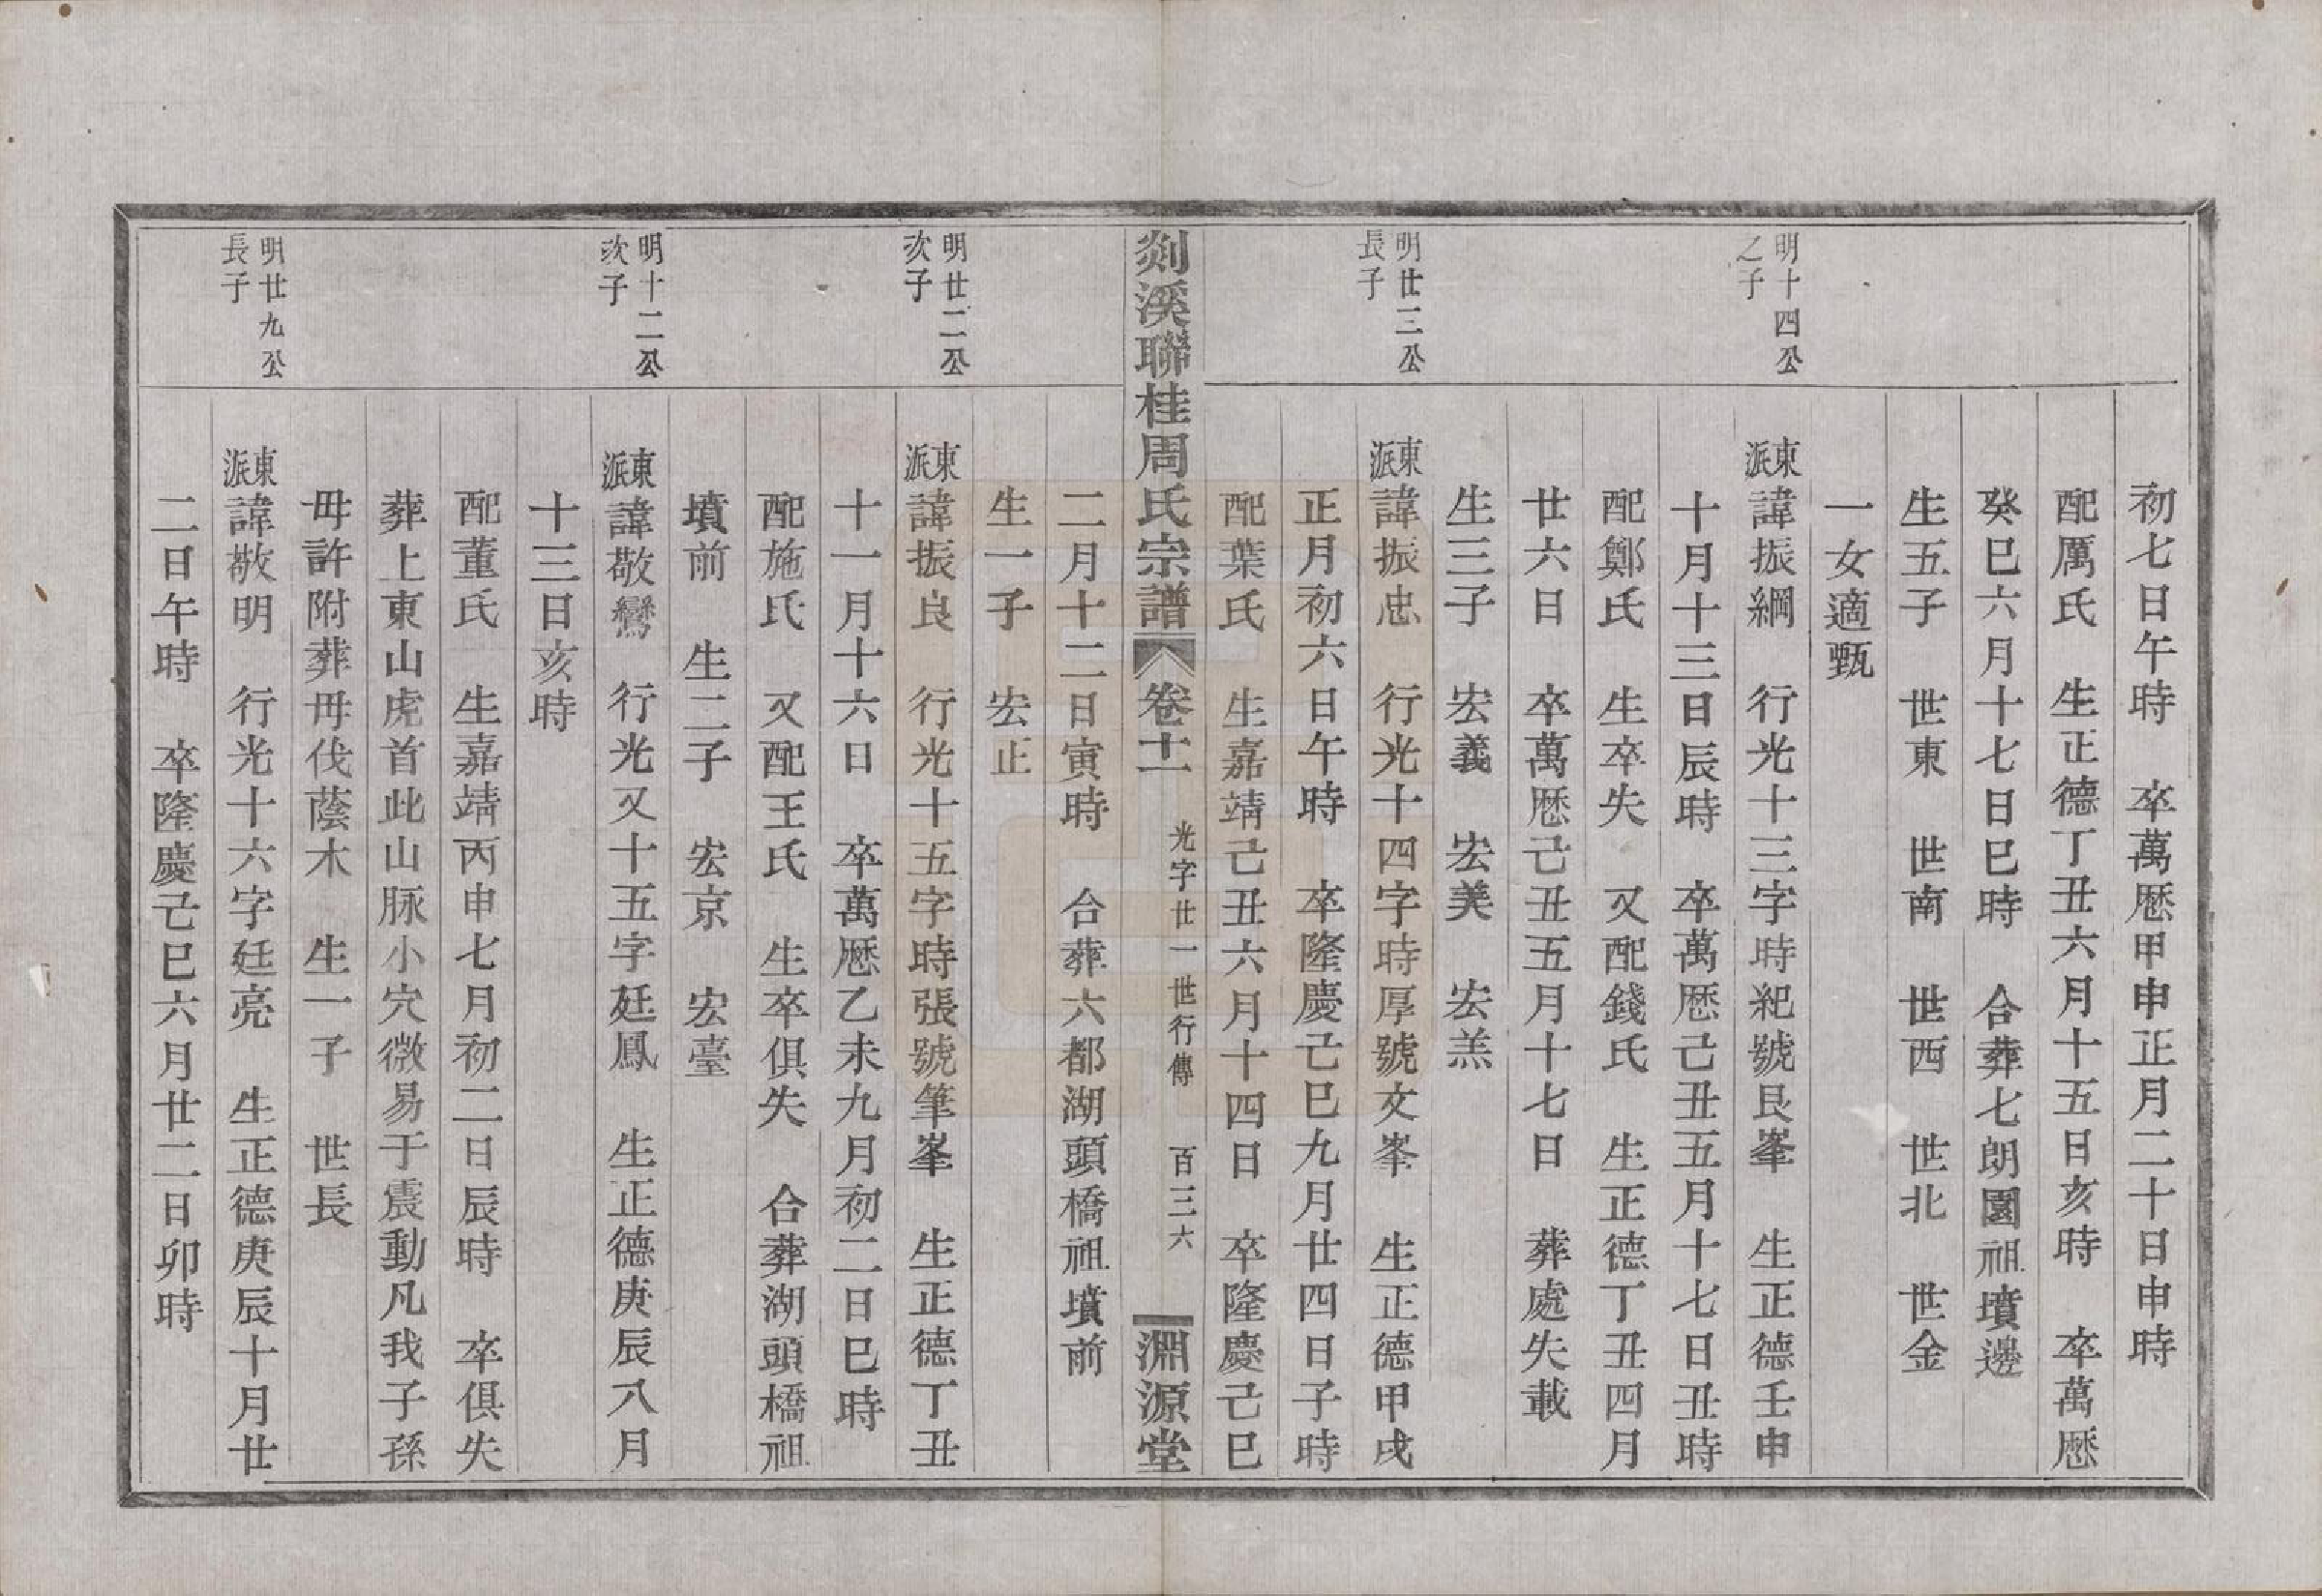 初七日午時　卒萬歷甲申正月二十日申時
配厲氏　生正德丁丑六月十五日亥時　卒萬歷
癸巳六月十七日巳時　合葬七朗園祖墳邊
生五子　世東　世南　世西　世北　世金
一女適甄
明十四公
之子
東派諱振綱　行光十三字時紀號艮峯　生正德壬申
十月十三日辰時　卒萬歷己丑五月十七日丑時
配鄭氏　生卒失　又配錢氏　生正德丁丑四月
廿六日　卒萬歷己丑五月十七日　葬處失載
生三子　宏義　宏美　宏羔
明廿三公
長子
東派諱振忠　行光十四字時厚號文峯　生正德甲戌
正月初六日午時　卒隆慶己巳九月廿四日子時
配葉氏　生嘉靖己丑六月十四日　卒隆慶己巳
剡溪聯桂周氏宗譜　卷十一　光字廿一世行傳　百三六　淵源堂
二月十二日寅時　合葬六都湖頭橋祖墳前
生一子　宏正
明廿二公
次子
東派諱振良　行光十五字時張號筆峯　生正德丁丑
十一月十六日　卒萬歷乙未九月初二日巳時
配施氏　又配王氏　生卒俱失　合葬湖頭橋祖
墳前　生二子　宏京　宏臺
明十二公
次子
東派諱敬鸞　行光又十五字廷鳳　生正德庚辰八月
十三日亥時
配董氏　生嘉靖丙申七月初二日辰時　卒俱失
葬上東山虎首此山脉小穴微易于震動凡我子孫
毋許附葬毋伐蔭木　生一子　世長
明廿九公
長子
東派諱敬明　行光十六字廷亮　生正德庚辰十月廿
二日午時　卒隆慶己巳六月廿二日卯時